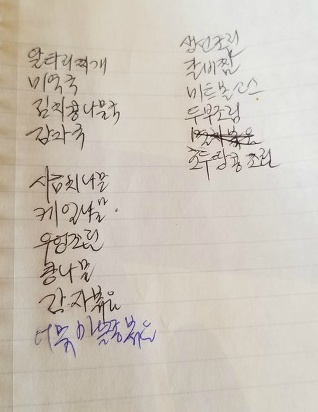 알타리찌개
미역국
김치콩나물국
감자국
시금치나물
케일나물
우엉조림
콩나물
감자볶음
생선조림
갈비찜
미트볼소스
두부조림
호두땅콩조림